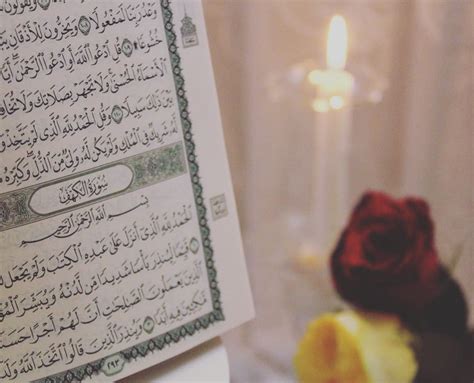 وَعْدُ رَبِّنَا لَمَفْعُولًا ١٠٨ وَيَخِرُّونَ لِلْأَذْقَانِ
خُشُوعًا ١٠٩ قُلِ ادْعُوا اللَّهَ أَوِ ادْعُوا الرَّحْمَٰنَ أَيًّا
الْأَسْمَاءُ الْحُسْنَىٰ وَلَا تَجْهَرْ بِصَلَاتِكَ وَلَا تُخَافِتْ
بَيْنَ ذَٰلِكَ سَبِيلًا ١١٠ وَقُلِ الْحَمْدُ لِلَّهِ الَّذِي لَمْ يَتَّخِذْ
لَّهُ شَرِيكٌ فِي الْمُلْكِ وَلَمْ يَكُن لَّهُ وَلِيٌّ مِّنَ الذُّلِّ وَكَبِّرْهُ
سُورَةُ الْكَهْفِ
بِسْمِ اللَّهِ الرَّحْمَٰنِ الرَّحِيمِ
الْحَمْدُ لِلَّهِ الَّذِي أَنزَلَ عَلَىٰ عَبْدِهِ الْكِتَٰبَ وَلَمْ يَجْعَل
قَيِّمًا لِّيُنذِرَ بَأْسًا شَدِيدًا مِّن لَّدُنْهُ وَيُبَشِّرَ
الَّذِينَ يَعْمَلُونَ الصَّٰلِحَٰتِ أَنَّ لَهُمْ أَجْرًا حَسَنًا
مَّٰكِثِينَ فِيهِ أَبَدًا ٣ وَيُنذِرَ الَّذِينَ قَالُوا اتَّخَذَ اللَّهُ وَلَدًا
٢٩٣